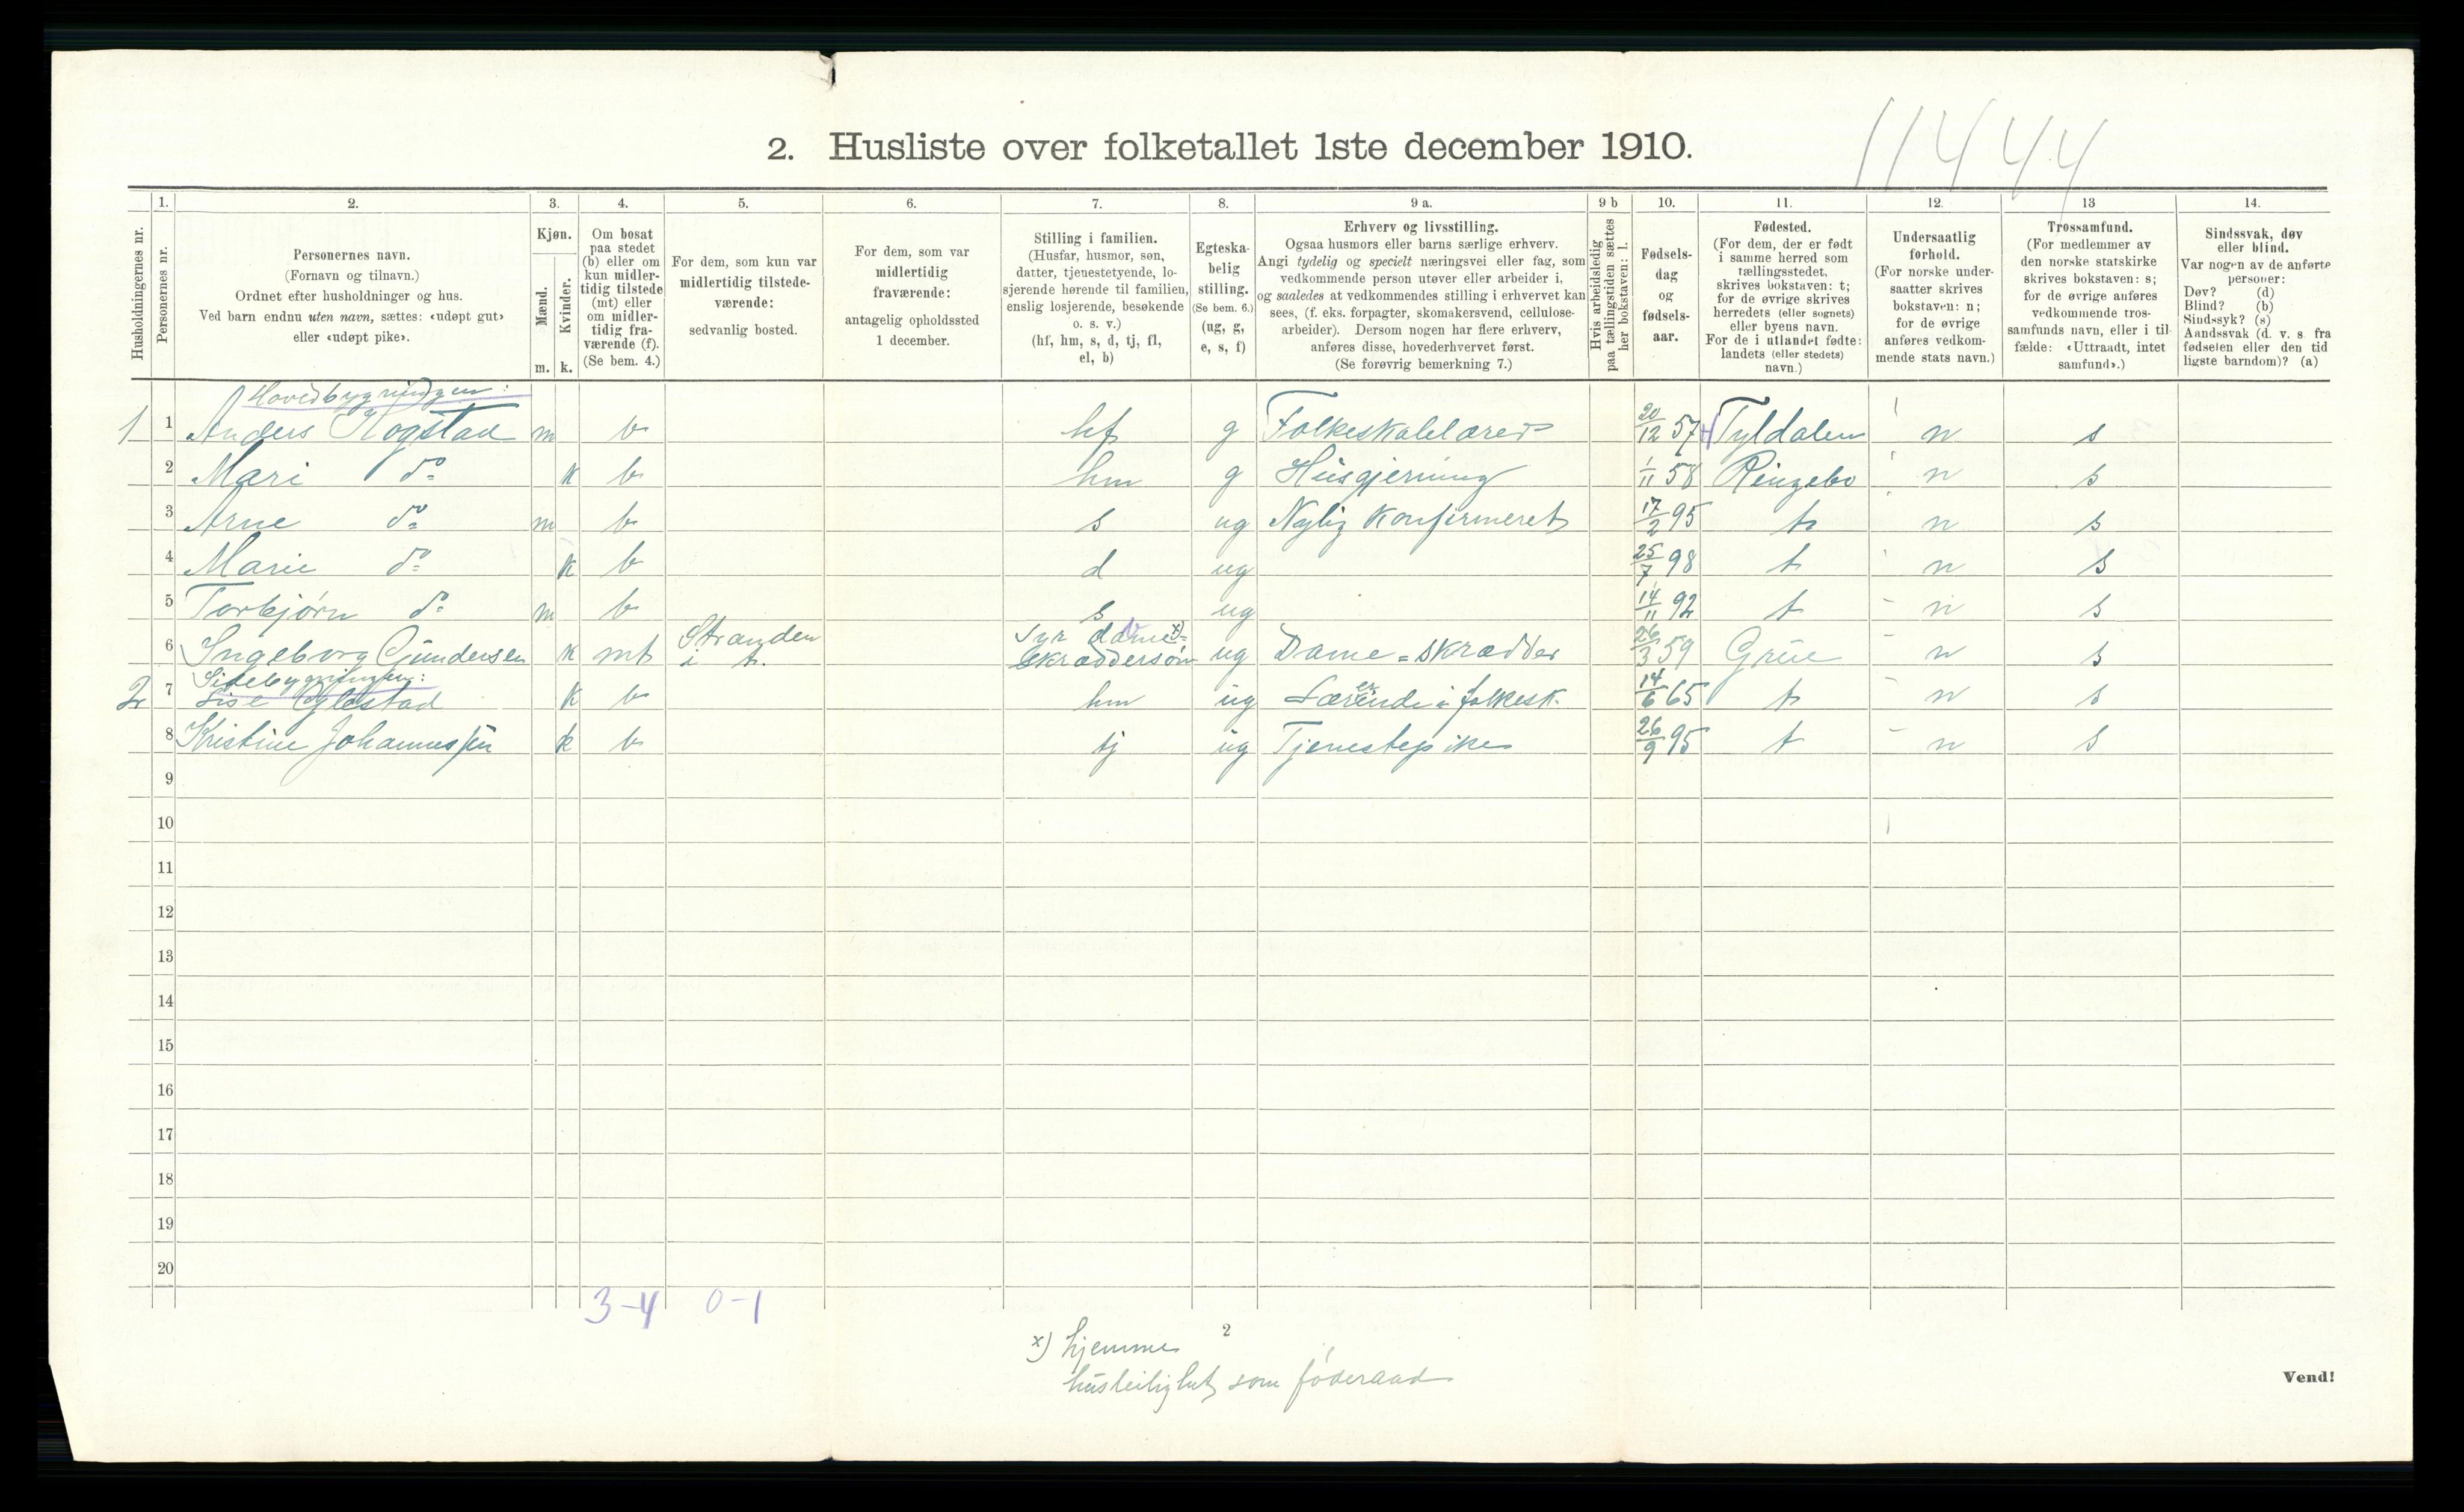 11444
2. Husliste over folketallet 1ste december 1910.
Husholdningernes nr.
1.
Personernes nr.
2.
Personernes navn.
(Fornavn og tilnavn.)
Ordnet efter husholdninger og hus.
Ved barn endnu uten navn, sættes: «udøpt gut»
eller «udøpt pike».
3.
Kjøn.
Mænd.
Kvinder.
m. k.
4.
Om bosat
paa stedet
(b) eller om
kun midler-
tidig tilstede
(mt) eller
om midler-
tidig fra-
værende (f).
(Se bem. 4.)
5.
For dem, som kun var
midlertidig tilstede-
værende:
sedvanlig bosted.
6.
For dem, som var
midlertidig
fraværende:
antagelig opholdssted
1 december.
7.
Stilling i familien.
(Husfar, husmor, søn,
datter, tjenestetyende, lo-
sjerende hørende til familien,
enslig losjerende, besøkende
o. s. v.)
(hf, hm, s, d, tj, fl,
el, b)
8.
Egteska-
belig
stilling.
(Se bem. 6.)
(ug, g,
e, s, f)
9 a.
Erhverv og livsstilling.
Ogsaa husmors eller barns særlige erhverv.
Angi tydelig og specielt næringsvei eller fag, som
vedkommende person utøver eller arbeider i,
og saaledes at vedkommendes stilling i erhvervet kan
sees, (f. eks. forpagter, skomakersvend, cellulose-
arbeider). Dersom nogen har flere erhverv,
anføres disse, hovederhvervet først.
(Se forøvrig bemerkning 7.)
9 b
Hvis arbeidsledig
paa tællingstiden sættes
her bokstaven: l.
10.
Fødsels-
dag
og
fødsels-
aar.
11.
Fødested.
(For dem, der er født
i samme herred som
tællingsstedet,
skrives bokstaven: t;
for de øvrige skrives
herredets (eller sognets)
eller byens navn.
For de i utlandet fødte:
landets (eller stedets)
navn.)
12.
Undersaatlig
forhold.
(For norske under-
saatter skrives
bokstaven: n;
for de øvrige
anføres vedkom-
mende stats navn.)
13
Trossamfund.
(For medlemmer av
den norske statskirke
skrives bokstaven: s;
for de øvrige anføres
vedkommende tros-
samfunds navn, eller i til-
fælde: «Uttraadt, intet
samfund».)
14.
Sindssvak, døv
eller blind.
Var nogen av de anførte
personer:
Døv? (d)
Blind? (b)
Sindssyk? (s)
Aandssvak (d. v. s. fra
fødselen eller den tid
ligste barndom)? (a)
Hovedbygningen:
1 1 Anders Kogstad m b hf g Folkeskolelærer 20/12 57 Tyldalen n s
2 Mari do k b hm g Husgjerning 1/11 58 Ringebo n s
3 Arne do m b s ug Nylig Konfirmeret 17/2 95 t n s
4 Marie do k b d ug 25/7 98 t n s
5 Torbjørn do m b s ug 14/11 92 t n s
6 Ingeborg Gundersen k mt Stranden i t. ug Dame-skrædder 26/3 59 Grue n s
Sidebygningen:
2 7 Lise Oglestad k b hm ug Lærerinde i folkesk. 14/6 65 t n s
8 Kristine Johannessen k b tj ug Tjenestepike 26/9 95 t n s
9
10
11
12
13
14
15
16
17
18
19
20
3-4 0-1
2
x) hjemme
husleilighet som føderaad
Vend!